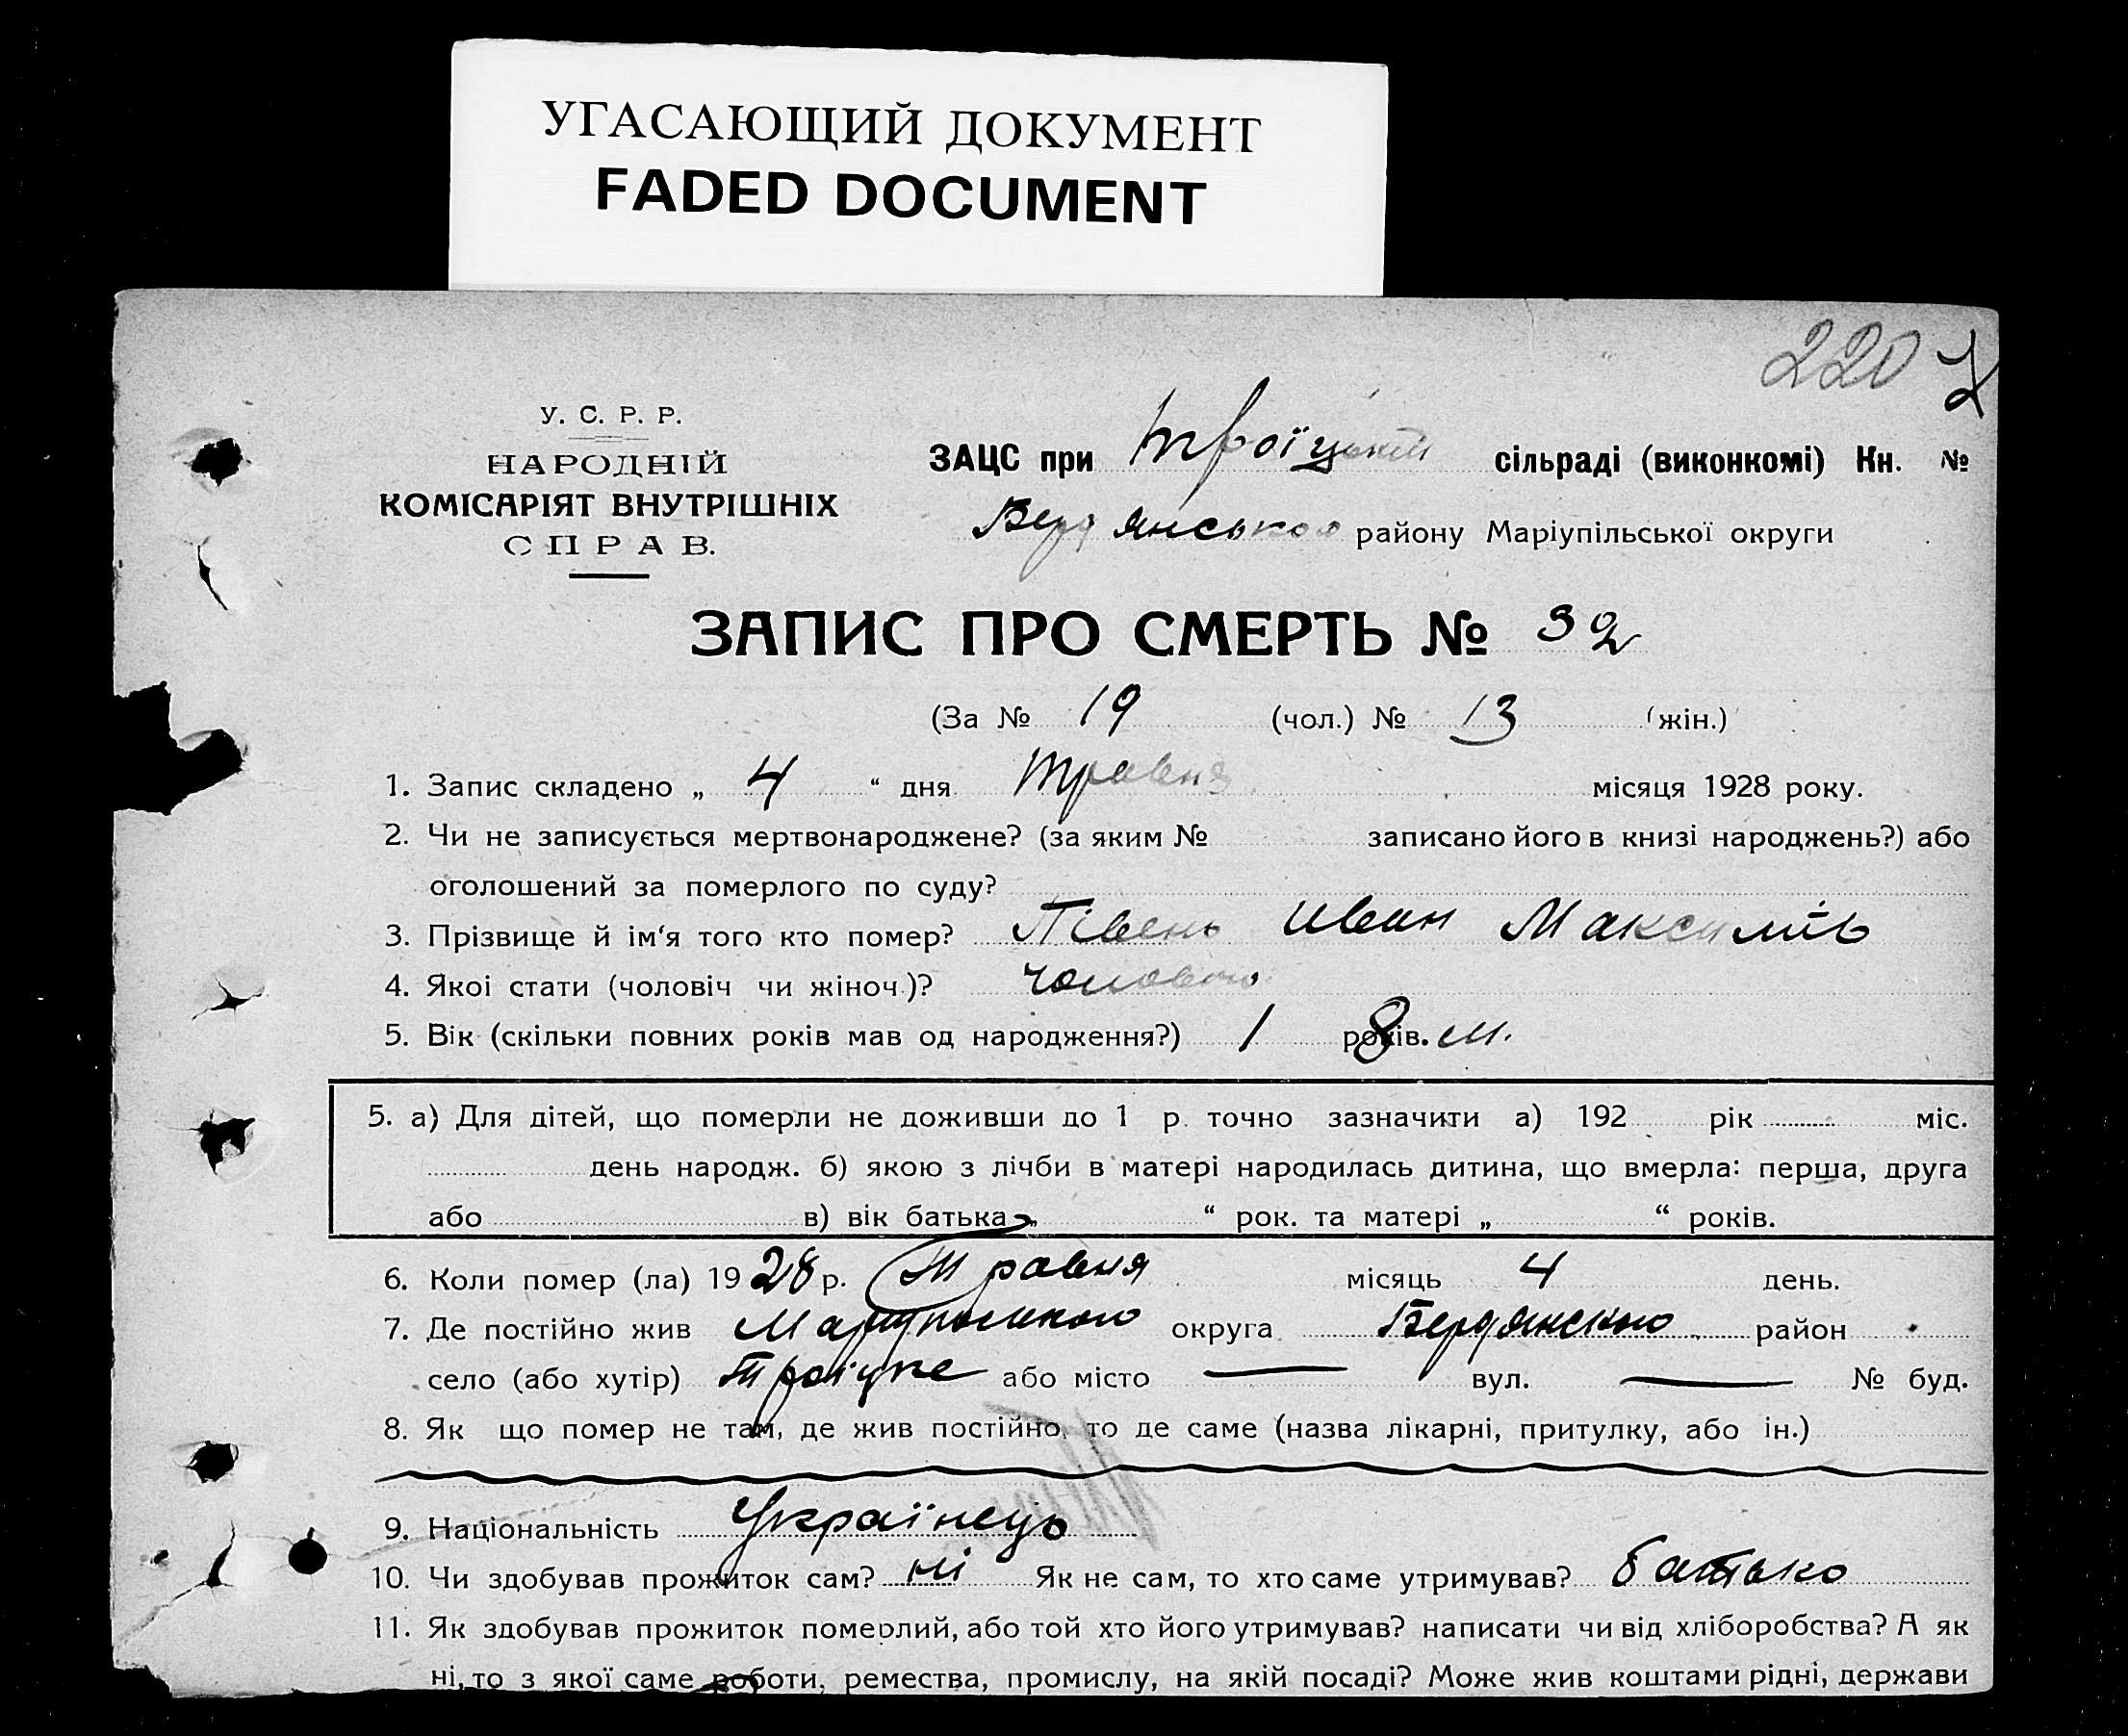 УГАСАЮЩИЙ ДОКУМЕНТ
FADED DOCUMENT
220
У. С. Р. Р.
НАРОДНІЙ
КОМІСАРІЯТ ВНУТРІШНІХ
СПРАВ.
ЗАЦС при Троїцькій сільраді (виконкомі) Кн. №
Бердянського району Маріупільської округи
ЗАПИС ПРО СМЕРТЬ № 32
(За № 19 (чол.) № 13 (жін.)
1. Запис складено „ 4 “ дня Травня місяця 1928 року.
2. Чи не записується мертвонароджене? (за яким № записано його в книзі народжень?) або
оголошений за померлого по суду?
3. Прізвище й ім'я того кто помер? Півень Иван Максимів
4. Якоі стати (чоловіч чи жіноч.)? чоловічо
5. Вік (скільки повних років мав од народження?) 1 років. 8 м.
5. а) Для дітей, що померли не доживши до 1 р. точно зазначити а) 192 рік міс.
день народж. б) якою з лічби в матері народилась дитина, що вмерла: перша, друга
або в) вік батька „ “ рок. та матері „ “ років.
6. Коли помер (ла) 1928 р. Травня місяць 4 день.
7. Де постійно жив округа Бердянского район
село (або хутір) Троїцке або місто — вул. — № буд.
8. Як що помер не там, де жив постійно, то де саме (назва лікарні, притулку, або ін.)
9. Національність Українець
10. Чи здобував прожиток сам? ні Як не сам, то хто саме утримував? батько
11. Як здобував прожиток померлий, або той хто його утримував? написати чи від хліборобства? А як
ні, то з якої саме роботи, ремества, промислу, на якій посаді? Може жив коштами рідні, держави